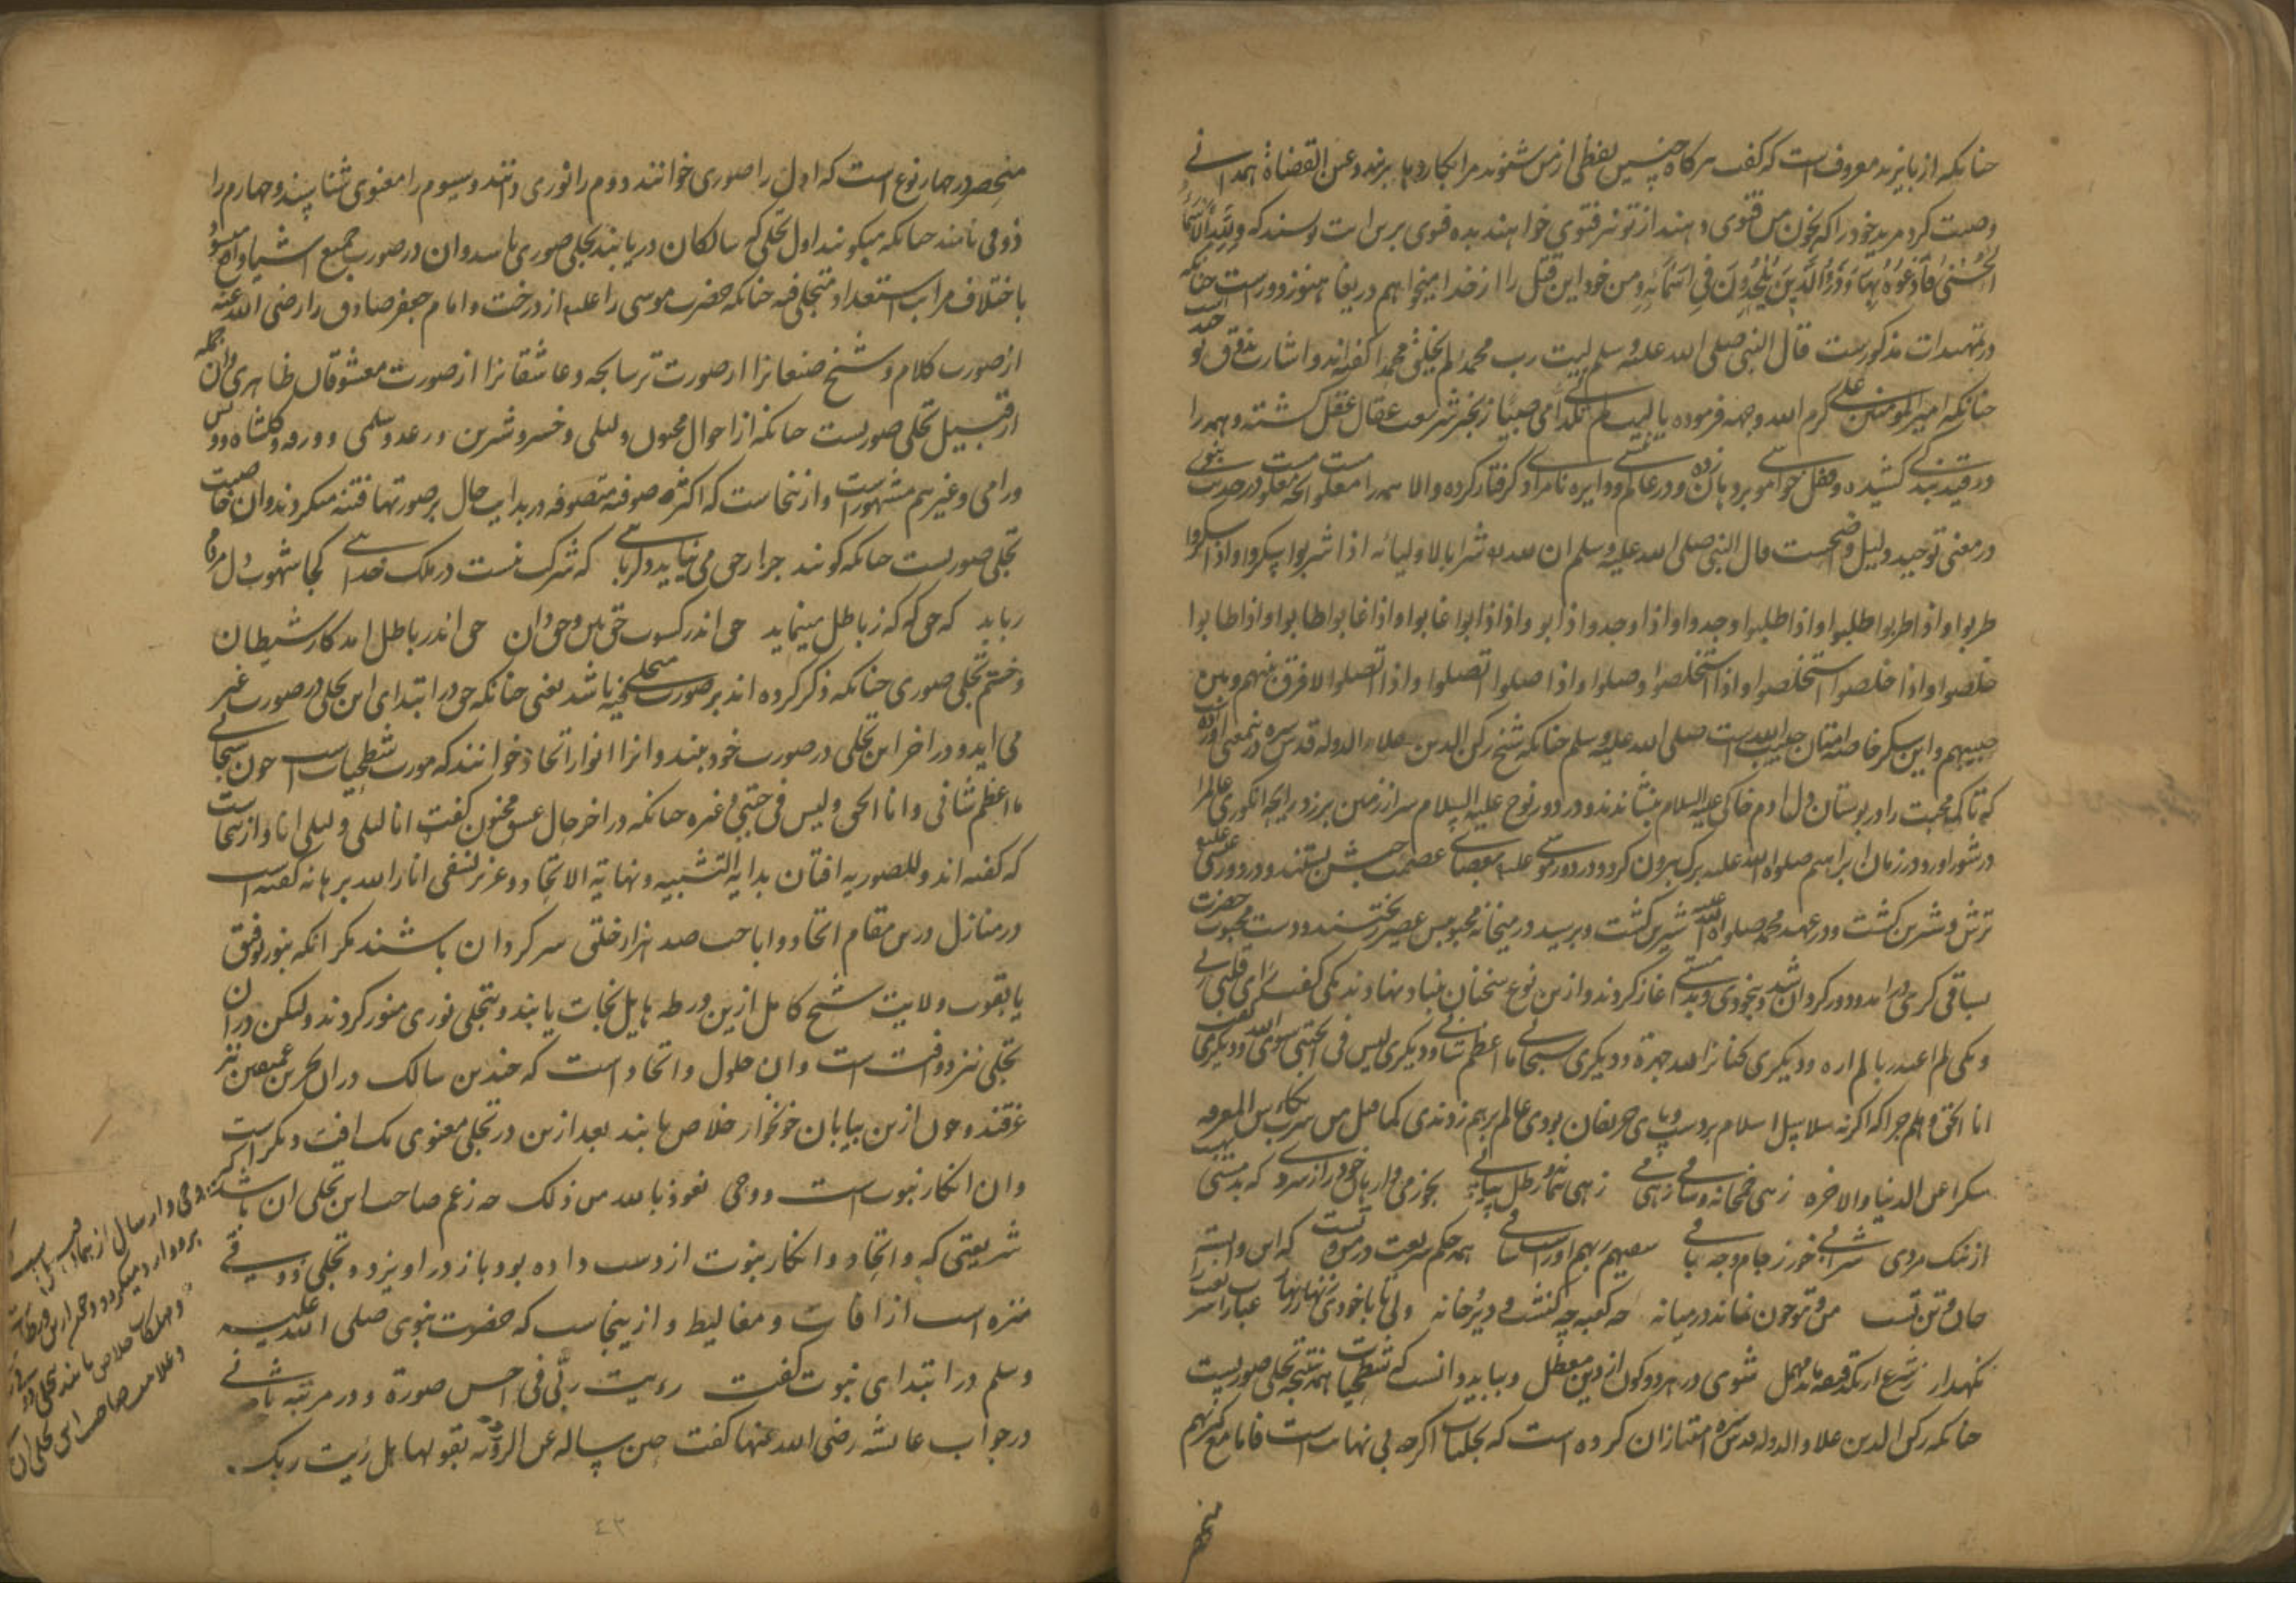 چنانکه از بایزید معروفست که گفت هرگاه چنین لفظی از من شنوند مرا بکاردها بزنند و عین القضاة همدانی
وصیت کرد مرید خود را که بخون من فتوی دهند از تو نیز فتوی خواهند بده فتوی برین آیت نویسند که وَلِلَّهِ الْأَسْمَاءُ
الْحُسْنَىٰ فَادْعُوهُ بِهَا وَذَرُوا الَّذِينَ يُلْحِدُونَ فِي أَسْمَائِهِ و من خود این قتل را از خدا میخواهم دریغا هنوز دورست چنانکه
در تمهیدات مذکورست قال النبی صلی الله علیه وسلم لیت رب محمد لم یخلق محمدا گفته اند و اشارت بذوق توحید است
چنانکه امیر المومنین علی کرم الله وجهه فرموده یا لیت امی صبیا زنجیر شریعت عقال عقل گشته و همه را
در قید بندگی کشیده و قفل خاموشی بر دهان زده و در عالم و دایره نامرادی گرفتار کرده والا همه را در حدیث نبوی
در معنی توحید دلیل واضحست قال النبی صلی الله علیه وسلم ان لله شرابا لاولیائه اذا شربوا سکروا و اذا سکروا
طربوا و اذا طربوا طلبوا و اذا طلبوا وجدوا و اذا وجدوا ذابوا و اذا ذابوا غابوا و اذا غابوا طابوا و اذا طابوا
خلصوا و اذا خلصوا استخلصوا و اذا استخلصوا وصلوا و اذا وصلوا اتصلوا و اذا اتصلوا لا فرق بینهم و بین
حبیبهم و این سکر خاصه امتان حبیب الله است صلی الله علیه وسلم چنانکه شیخ رکن الدین علاء الدوله قدس سره درین معنی آورده
که تاک محبت را در بوستان دل آدم خاکی علیه السلام بنشاندند و در دور نوح علیه السلام سر از زمین برزد و رایحه انگوری عالم را
در شور آورد و در زمان ابراهیم صلوة الله علیه برگ بیرون کرد و در دور موسی علیه بعصای عصمت بستند و در دور عیسی علیه
ترش و شیرین گشت و در عهد محمد صلوة الله علیه شیرین گشت و برسید در میخانه ریختند و دوست محبوب حضرت
بساقی گری در آمد و دور گردان شد و بیخودی و مستی آغاز کردند و ازین نوع سخنان بنیاد نهادند یکی گفت رأی قلبی ربی
و یکی لم اعبد ربا لم اره و دیگری کنا نرا الله جهرة و دیگری سبحانی ما اعظم شانی و دیگری لیس فی الجبتی سوی الله و دیگری گفت
انا الحق و هلم جرا که اگر نه سلاسل اسلام بر دست و پای حریفان بودی عالم برهم زدندی کما قیل من شرب بکاس المعرفه
سکرا عن الدنیا والاخره زهی خمخانه و ساقی زهی می زهی نماز و رطل پیاپی بخور می وارهان خود را ز سردی که بدمستی بهست
از نیک مردی شرابی خور ز جام وجه باقی سقیهم ربهم او راست ساقی همه حکم شریعت در من و تست که این وابسته
جان و تن تست من و تو چون نماند در میانه چه کعبه چه کنشت و دیرخانه ولی تا با خودی زنهار زنهار عبارات شریعت را
نگهدار شوی در هر دو کون از دین معطل و بباید دانست که شطحیات همه نتیجه تجلی صوریست
چنانکه رکن الدین علاء الدوله قدس سره امتیاز آن کرده است که تجلیات اگرچه بی نهایت است فاما مع کثرتهم
منحصر
منحصر در چهار نوع است که اول را صوری خوانند دوم را نوری دانند و سیوم را معنوی شناسند و چهارم را
ذوقی نامند چنانکه میگویند اول تجلی که سالکان دریابند تجلی صوری باشد و آن در صورت جمیع اشیا واقع میشود
باختلاف مراتب استعداد متجلی فیه چنانکه حضرت موسی را علیه از درخت و امام جعفر صادق را رضی الله عنه
از صورت کلام و شیخ صنعانرا از صورت ترسابچه و عاشقانرا از صورت معشوقان ظاهری و آن جمله
از قبیل تجلی صوریست چنانکه از احوال مجنون و لیلی و خسرو و شیرین و رعد و سلمی و ورقه و گلشاه و ویس
و رامی و غیرهم مشهور است و از ینجاست که اکثر صوفیه متصوفه در بدایت حال بر صورتها فتنه میگردند و آن خاصیت
تجلی صوریست چنانکه گویند چرا جز حق می نیاید دلربایی که شرکت نیست در ملک خدایی کجا شهوت دل مردم
رباید که حق گه گه ز باطل مینماید حق اندر کسوت حق بین و حق دان حق اندر باطل آمد کار شیطان
و ختم تجلی صوری چنانکه ذکر کرده اند بر صورت متجلی فیه باشد یعنی چنانکه حق در ابتدای این تجلی در صورت غیر
می آید و در آخر این تجلی در صورت خود بیند و آنرا انوار اتحاد خوانند که مورث شطحیات است چون سبحانی
ما اعظم شانی و انا الحق و لیس فی جبتی و غیره چنانکه در آخر حال عشق مجنون گفت انا لیلی و لیلی انا و از ینجاست
که گفته اند و للصوریه آفتان بدایة التشبیه و نهایة الاتحاد و عزیز نسفی انار الله برهانه گفته است
در منازل درین مقام اتحاد و اباحت صد هزار خلق سرگردان باشند مگر آنکه بنور توفیق
یا بقوت ولایت شیخ کامل ازین ورطه هایل نجات یابند و بتجلی نوری منور گردند ولیکن در آن
تجلی نیز دو آفت است و آن حلول و اتحاد است که چندین سالک در آن بحرین عمیقین نیز
غرقند و چون ازین بیابان خونخوار خلاص یابند بعد ازین در تجلی معنوی یک آفت دیگر است
و آن انکار نبوت است و وحی نعوذ بالله من ذلک چه زعم صاحب این تجلی آن باشد که
شریعتی که و اتحاد و انکار نبوت از دست داده بود باز در آویزد و تجلی ذوقی
منزه است از آفات و مغالیط و از ینجاست که حضرت نبوی صلی الله علیه
وسلم در ابتدای نبوت گفت رویت ربّی فی احسن صورة و در مرتبه ثانی
در جواب عائشه رضی الله عنها گفت حین ساله عن الرویة بقولها هل رئیت ربک
وحی و ارسال از
و مهلکات خلاص یابند بتجلی ذوقی
و علامت صاحب این تجلی آن
٤٣